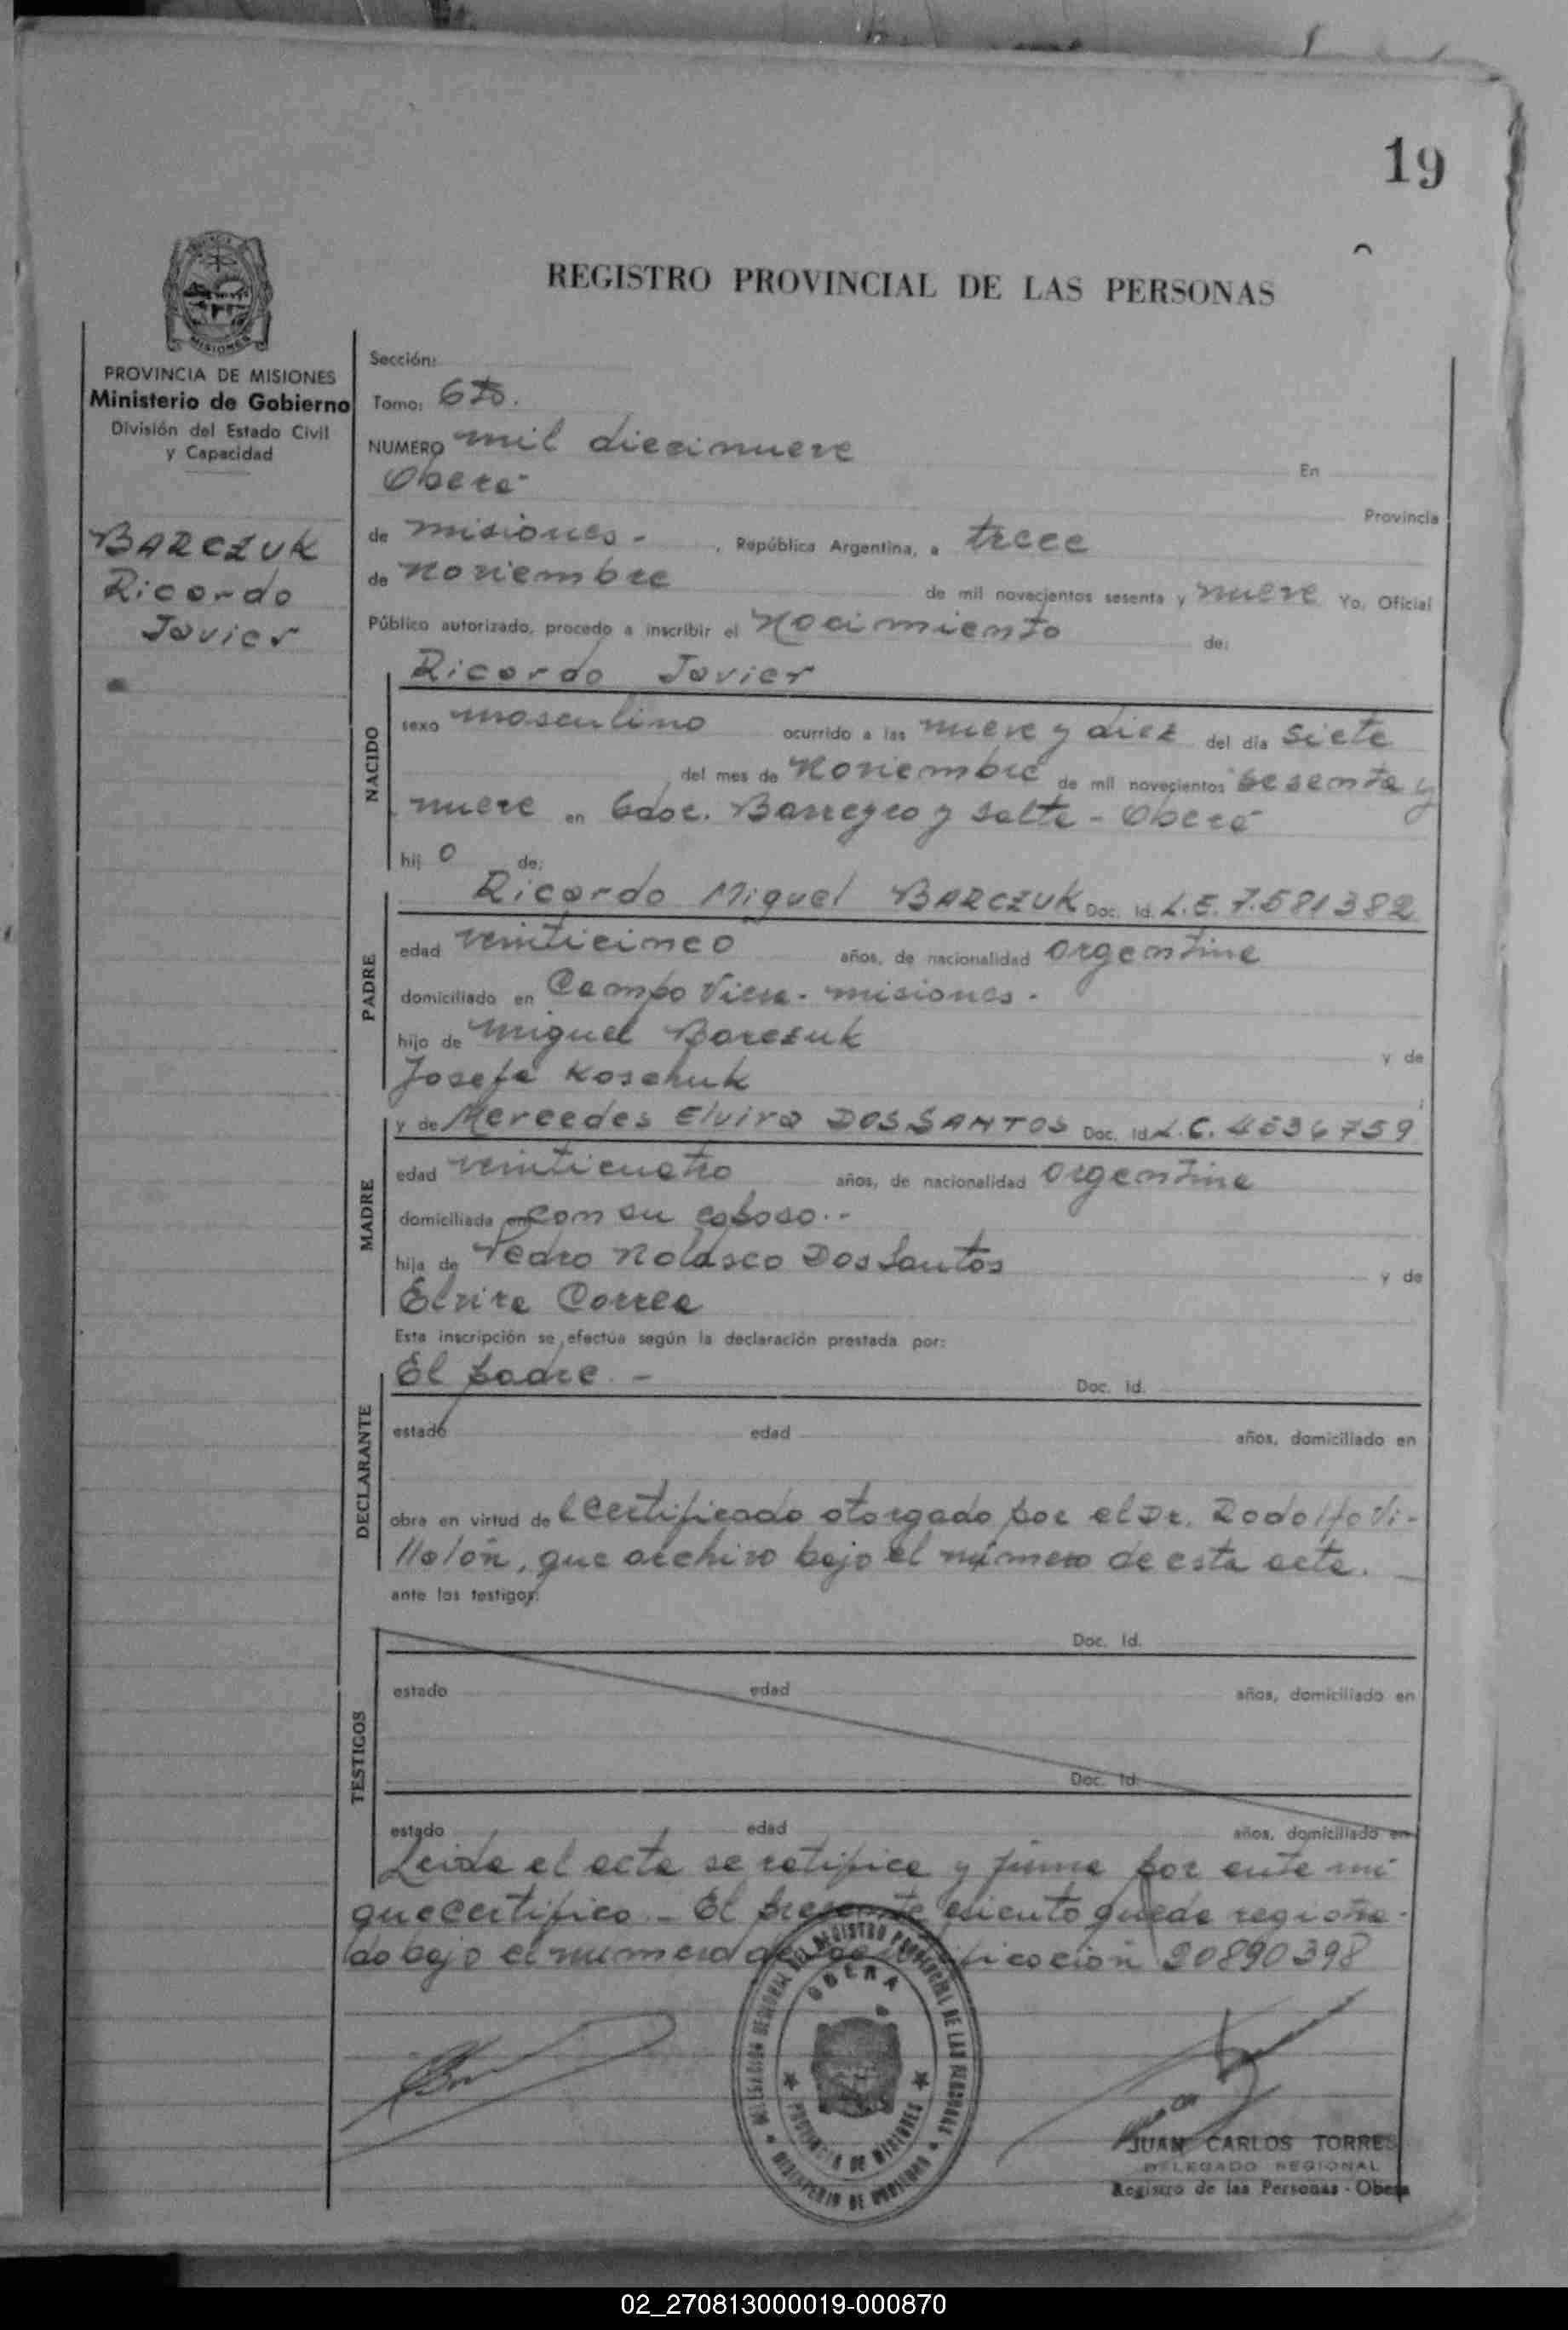 19
REGISTRO PROVINCIAL DE LAS PERSONAS
MISIONES
PROVINCIA DE MISIONES
Ministerio de Gobierno
División del Estado Civil
y Capacidad
BARCZUK
Ricardo
Javier
Sección:
Tomo: 6to.
NUMERO mil diecinueve En
Oberá
Provincia
de misiones - , República Argentina, a trece
de noviembre de mil novecientos sesenta y nueve Yo, Oficial
Público autorizado, procedo a inscribir el nacimiento de:
Ricardo Javier
NACIDO
sexo masculino ocurrido a las nueve y diez del día siete
del mes de noviembre de mil novecientos sesenta y
nueve en Gdor. Barreyro y Salta - Oberá
hij o de:
Ricardo Miguel BARCZUK Doc. Id. L.E. 7.581382
PADRE
edad veinticinco años, de nacionalidad argentina
domiciliado en Campo Viera - misiones -
hijo de Miguel Barczuk y de
Josefa Koschuk
y de Mercedes Elvira DOS SANTOS Doc. Id. L.C. 4836759
MADRE
edad veinticuatro años, de nacionalidad argentina
domiciliada en con su esposo.-
hija de Pedro Nolasco Dos Santos y de
Elvira Correa
Esta inscripción se efectúa según la declaración prestada por:
El padre. - Doc. Id.
DECLARANTE
estado edad años, domiciliado en
obra en virtud de l certificado otorgado por el Dr. Rodolfo Vi-
llalón, que archivo bajo el número de esta acta. -
ante los testigos:
TESTIGOS
Doc. Id.
estado edad años, domiciliado en
Doc. Id.
estado edad años, domiciliado en
Leida el acta se ratifica y firma por ante mí
que certifico - El presente asiento queda registra-
do bajo el numero de identificación 20890398
DELEGACION REGIONAL DEL REGISTRO PROVINCIAL DE LAS PERSONAS
OBERA
PROVINCIA DE MISIONES
MINISTERIO DE GOBIERNO
JUAN CARLOS TORRES
DELEGADO REGIONAL
Registro de las Personas - Obera
02_270813000019-000870